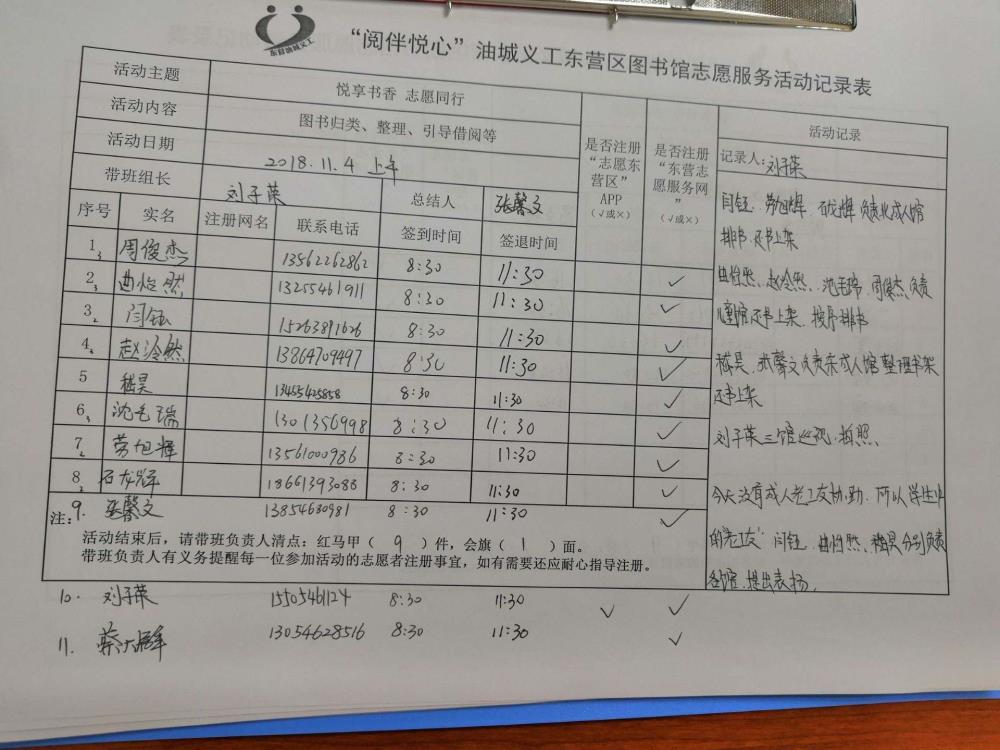 东营油城义工
“阅伴悦心”油城义工东营区图书馆志愿服务活动记录表
活动主题 悦享书香 志愿同行
活动内容 图书归类、整理、引导借阅等
活动日期 2018.11.4 上午
带班组长 刘子荣 总结人 张馨文
序号 实名 注册网名 联系电话 签到时间 签退时间
是否注册
“志愿东
营区”
APP
(√或×)
是否注册
“东营志
愿服务网
”
(√或×)
1 3 周俊杰 13562262862 8:30 11:30 ✓
2 3 曲怡然 13255461911 8:30 11:30 ✓
3 2 闫钰 15263891626 8:30 11:30 ✓
4 3 赵泠然 13864709497 8:30 11:30 ✓
5 嵇昊 13455425858 8:30 11:30 ✓
6 3 沈毛瑞 1301356998 8:30 11:30 ✓
7 2 劳旭辉 13561000986 8:30 11:30 ✓
8 2 石龙辉 18661393088 8:30 11:30 ✓
注:9. 张馨文 13854630981 8:30 11:30 ✓
活动结束后，请带班负责人清点：红马甲（ 9 ）件，会旗（ 1 ）面。
带班负责人有义务提醒每一位参加活动的志愿者注册事宜，如有需要还应耐心指导注册。
10. 刘子荣 15505461124 8:30 11:30 ✓ ✓
11. 蔡 13054628516 8:30 11:30 ✓
活动记录
记录人：刘子荣
闫钰、劳旭辉、石龙辉负责北成人馆
排书、还书上架
曲怡然、赵泠然、沈毛瑞、周俊杰负责
儿童馆还书上架、按序排书
嵇昊、张馨文负责东成人馆整理书架
还书上架
刘子荣三馆巡视、拍照、
今天没有成人老工友协助，所以学生中
的“老工友”闫钰、曲怡然、嵇昊分别负责
各馆，提出表扬。